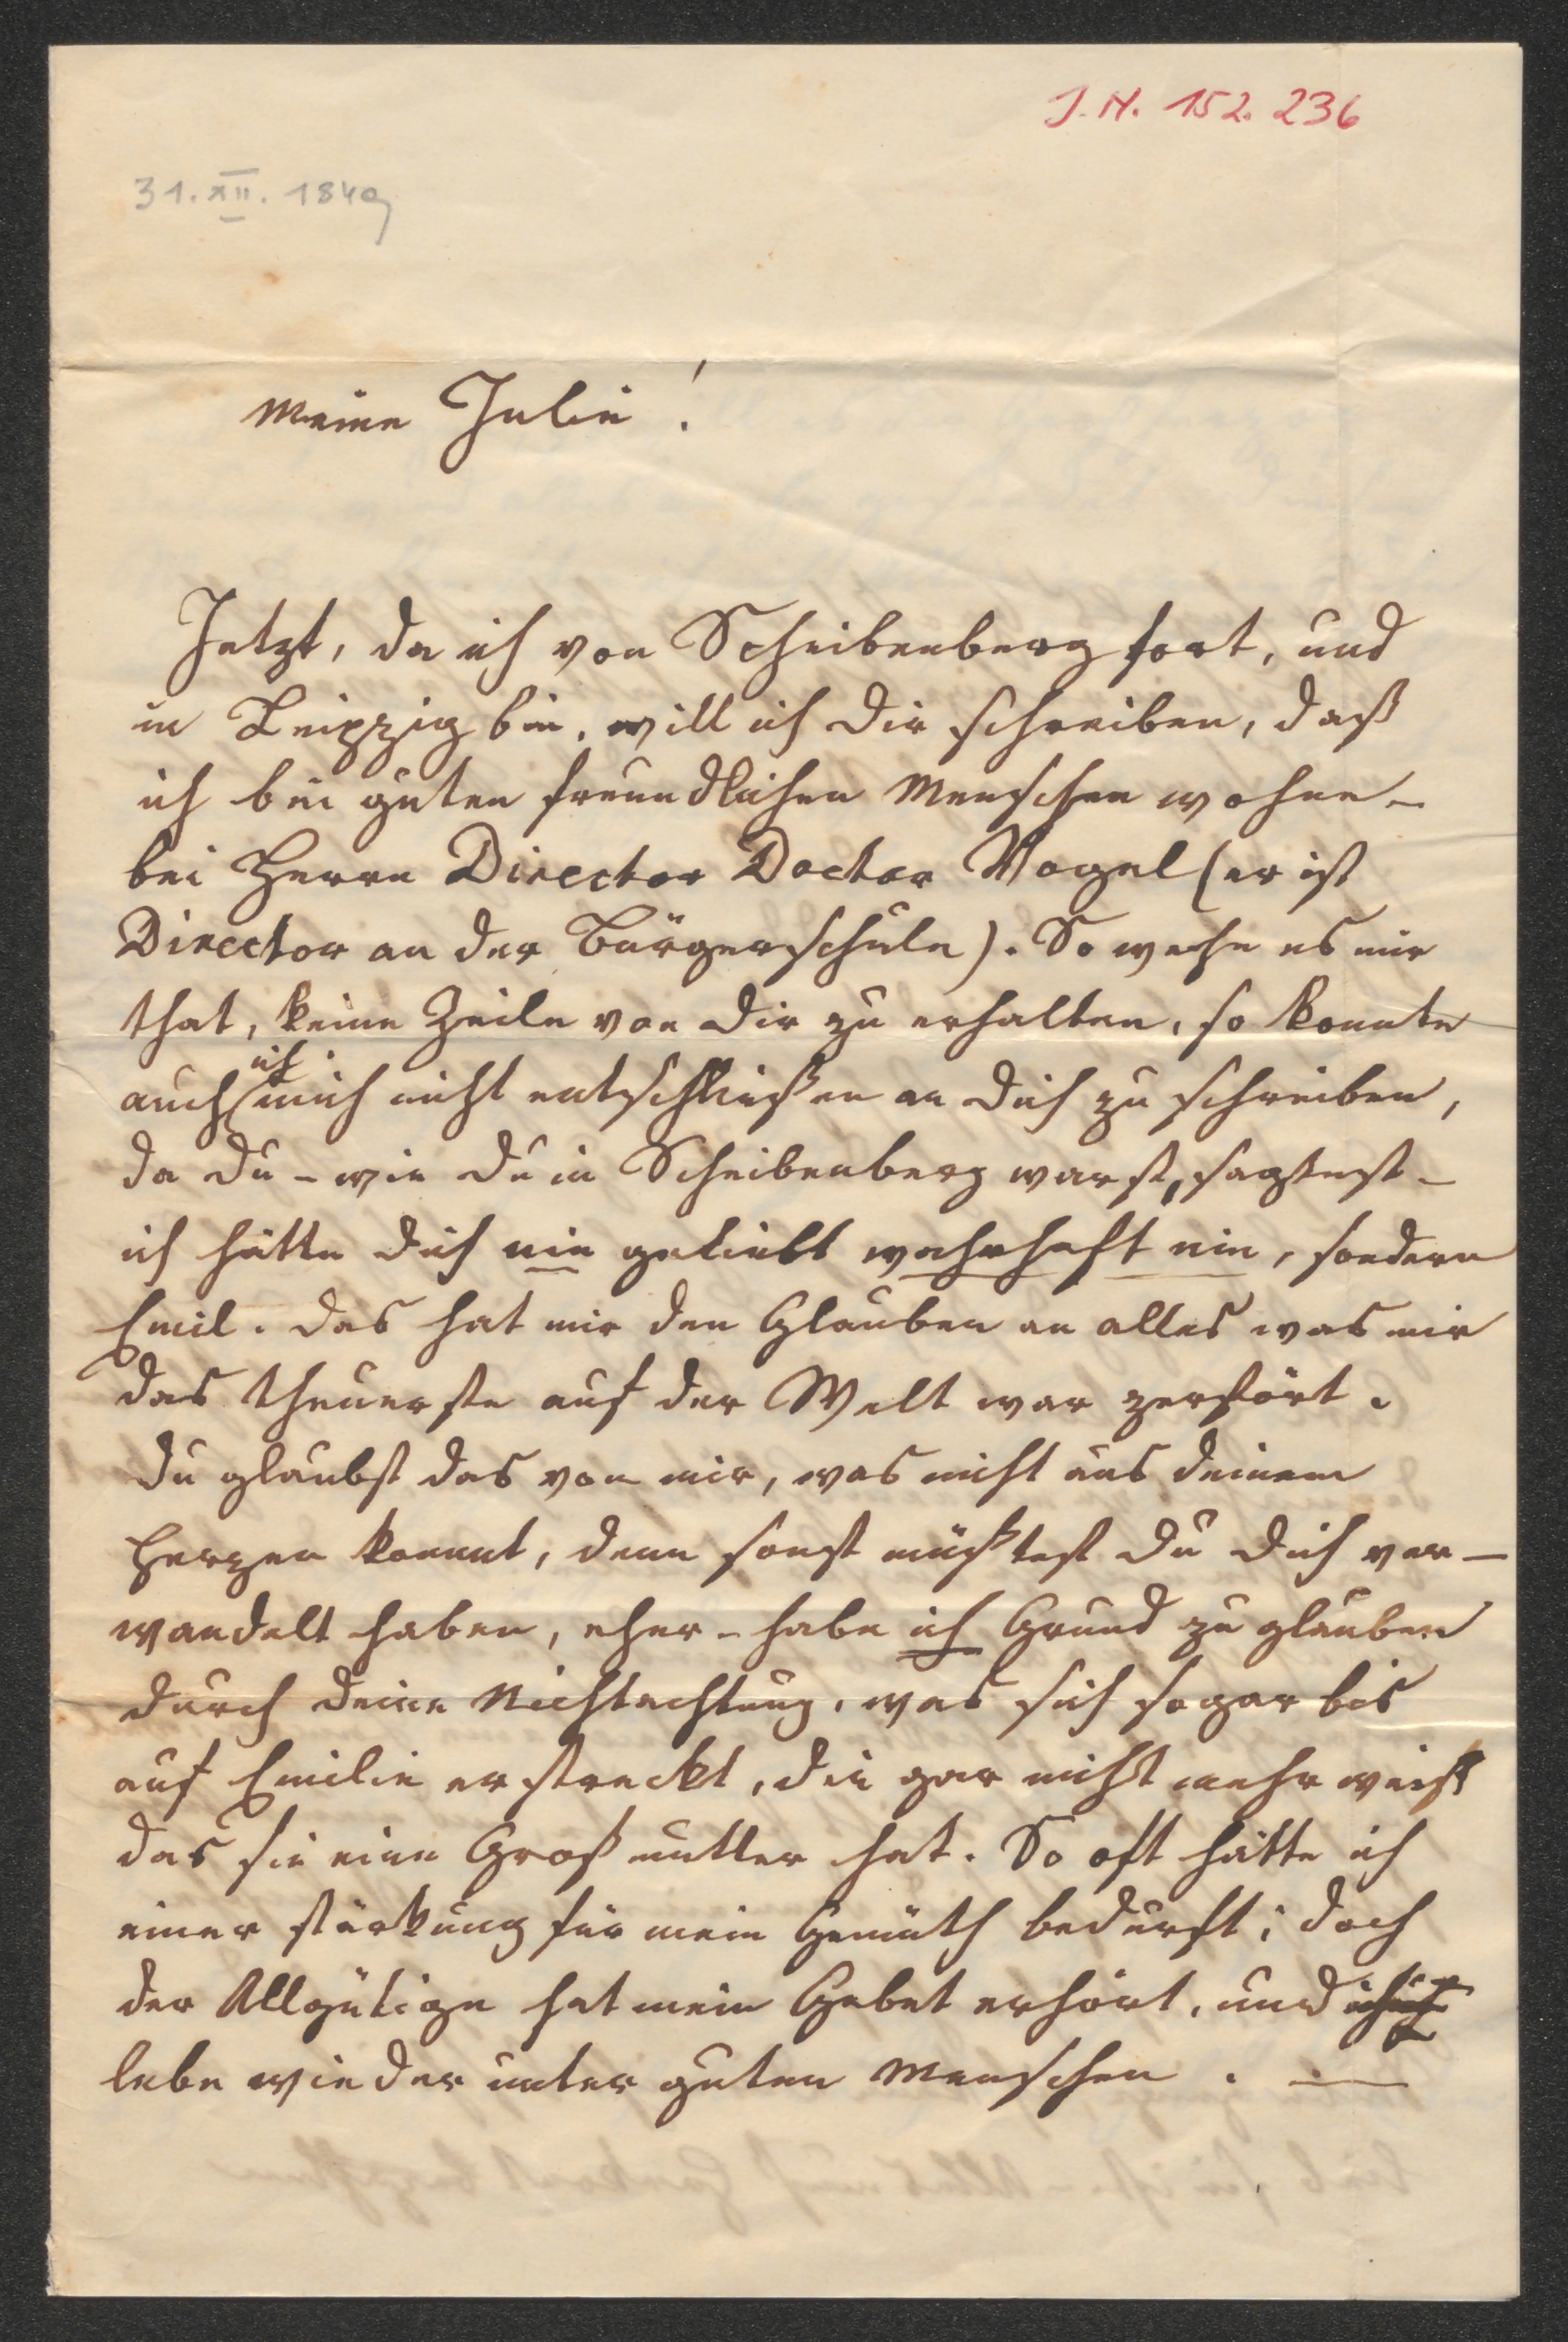 J. N. 152. 236
31. XII. 1849
Meine Julie!
Jetzt, da ich von Scheibenberg fort, und
in Leipzig bin, will ich Dir schreiben, daß
ich bei guten freundlichen Menschen wohne –
bei Herrn Director Doctor Vogel (er ist
Director an der Bürgerschule). So wehe es mir
that, keine Zeile von Dir zu erhalten, so konnte
auch ich mich nicht entschließen an Dich zu schreiben,
da Du – wie Du in Scheibenberg warst, sagtest –
ich hätte Dich nie geliebt wahrhaft nie, sondern
Emil. Das hat mir den Glauben an alles was mir
das theuerste auf der Welt war zerstört.
Du glaubst das von mir, was nicht aus Deinem
Herzen kommt, denn sonst müßtest Du Dich ver–
wandelt haben, eher – habe ich Grund zu glauben
durch Deine Nichtachtung, was sich sogar bis
auf Emilie erstreckt, die gar nicht mehr weiß
das sie eine Großmutter hat. So oft hätte ich
einer stärkung für mein Gemüth bedurft; doch
der Allgütige hat mein Gebet erhört, und
lebe wieder unter guten Menschen. –